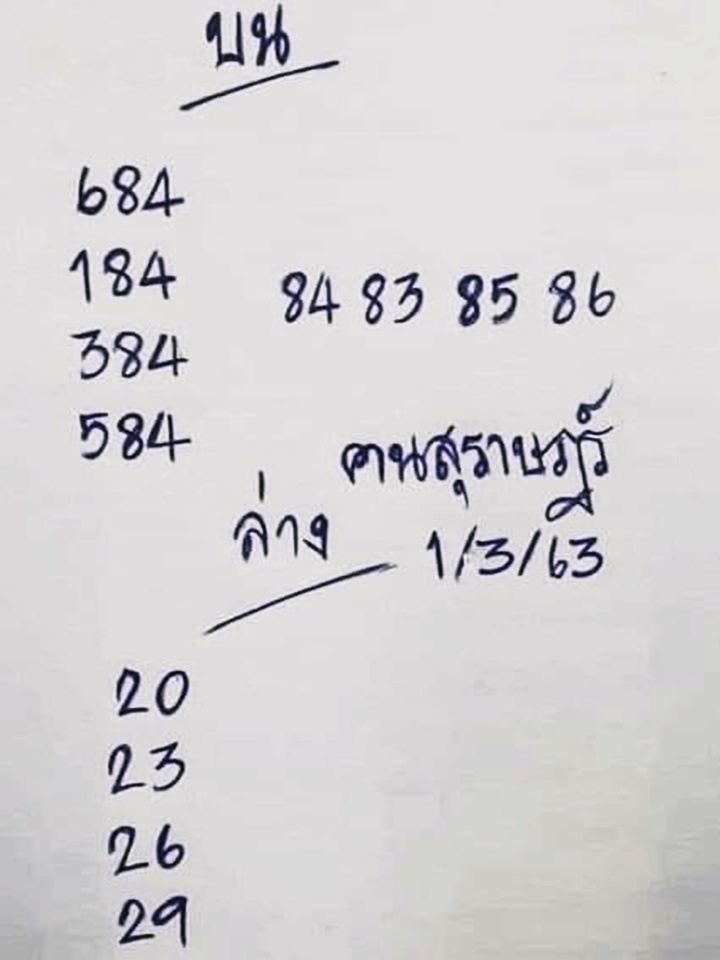 บน
684
184
84 83 85 86
384
584
คนสุราษฎร์
ล่าง
1/3/63
20
23
26
29